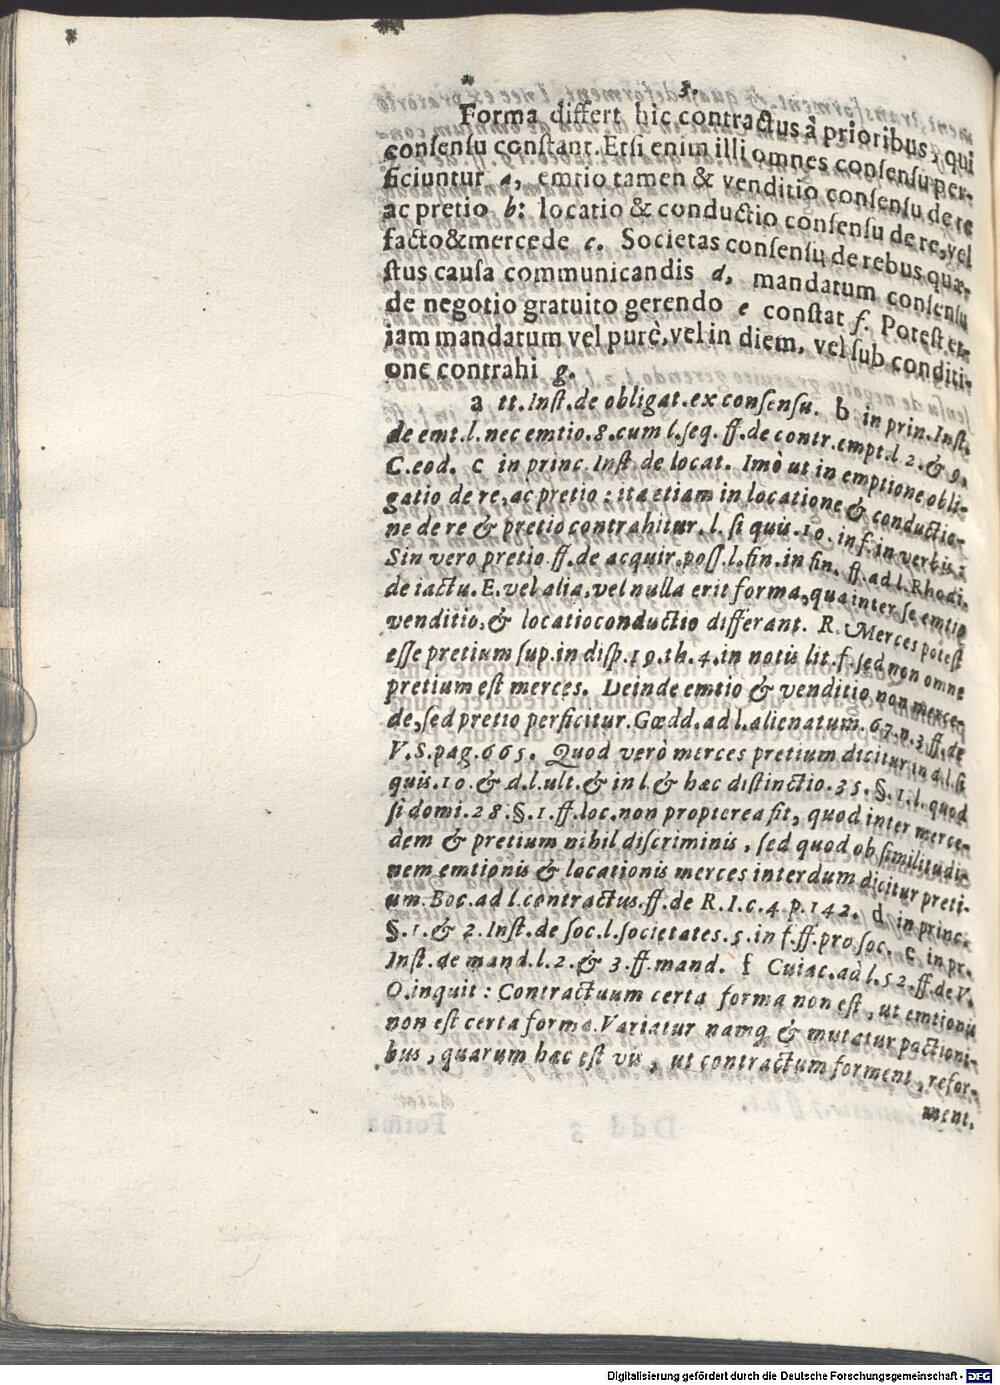 3.
Forma differt hic contractus à prioribus, qui
consensu constant. Etsi enim illi omnes consensu per-
ficiuntur a, emtio tamen & venditio consensu de re
ac pretio b: locatio & conductio consensu de re, vel
facto & mercede c. Societas consensu de rebus quæ-
stus causa communicandis d, mandatum consensu
de negotio gratuito gerendo e constat f. Potest et-
iam mandatum vel purè, vel in diem, vel sub conditi-
one contrahi g.
a tt. Inst. de obligat. ex consensu. b in prin. Inst.
de emt. l. nec emtio. 8. cum l. seq. ff. de contr. empt. l. 2. & 9.
C. eod. c in princ. Inst. de locat. Imò ut in emptione obli-
gatio de re, ac pretio: ita etiam in locatione & conductio-
ne de re & pretio contrahitur. l. si quis. 10. in f. in verbis:
Sin vero pretio ff. de acquir. poss. l. fin. in fin. ff. ad l. Rhodi.
de iactu. E. vel alia, vel nulla erit forma, qua inter se emtio
venditio, & locatio conductio differant. R. Merces potest
esse pretium sup. in disp. 19. th. 4. in notis lit. f. sed non omne
pretium est merces. Deinde emtio & venditio non merce-
de, sed pretio perficitur. Gœdd. ad l. alienatum. 67. n. 3. ff. de
V. S. pag. 665. Quod verò merces pretium dicitur in d. l. si
quis. 10. & d. l. ult. & in l. & hæc distinctio. 35. §. 1. l. quod
si domi. 28. §. 1. ff. loc. non propterea fit, quod inter merce-
dem & pretium nihil discriminis, sed quod ob similitudi-
nem emtionis & locationis merces interdum dicitur preti-
um. Boc. ad l. contractus. ff. de R. I. c. 4. p. 142. d in princ.
§. 1. & 2. Inst. de soc. l. societates. 5. in f. ff. pro soc. e in pr.
Inst. de mand. l. 2. & 3. ff. mand. f Cuiac. ad l. 52. ff. de V.
O. inquit: Contractuum certa forma non est, ut emtionis
non est certa forma. Variatur namq & mutatur pactioni-
bus, quarum hæc est vis, ut contractum forment, refor-
ment,
Digitalisierung gefördert durch die Deutsche Forschungsgemeinschaft - DFG